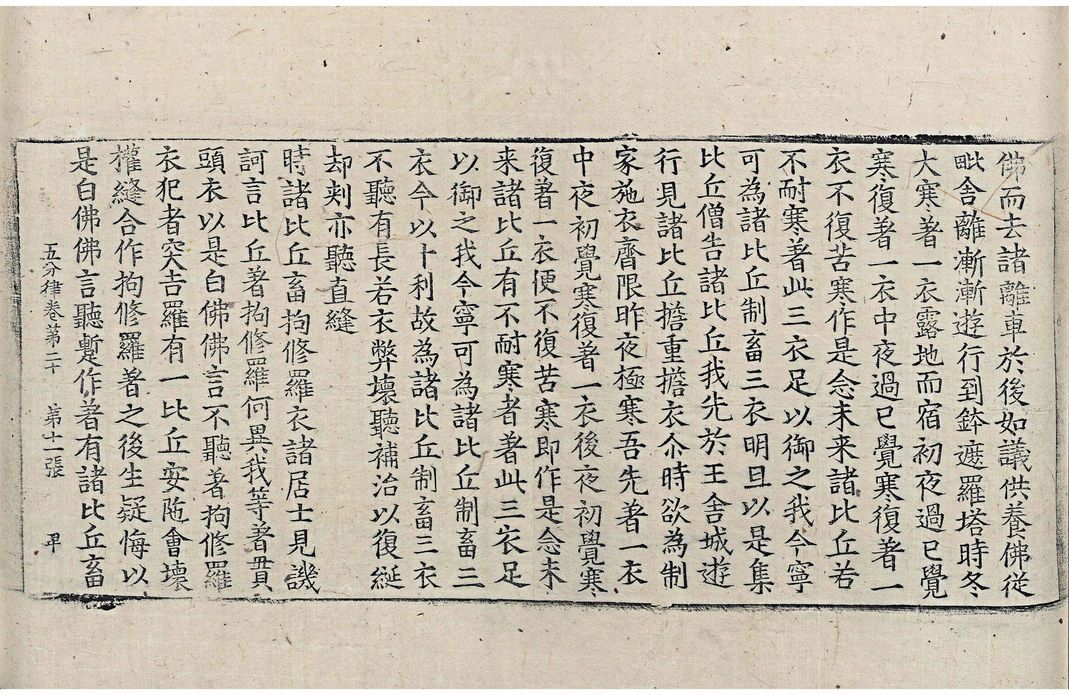 佛而去諸離車於後如議供養佛従
毗舍離漸漸遊行到鉢遮羅塔時冬
大寒著一衣露地而宿初夜過已覺
寒復著一衣中夜過已覺寒復著一
衣不復苦寒作是念未来諸比丘若
不耐寒著此三衣足以御之我今寧
可為諸比丘制畜三衣明旦以是集
比丘僧告諸比丘我先於王舍城遊
行見諸比丘擔重擔衣尒時欲為制
家施衣齊限昨夜極寒吾先著一衣
中夜初覺寒復著一衣後夜初覺寒
復著一衣便不復苦寒即作是念未
来諸比丘有不耐寒者著此三衣足
以御之我今寧可為諸比丘制畜三
衣今以十利故為諸比丘制畜三衣
不聽有長若衣弊壞聽補治以復綖
却刾亦聽直縫
時諸比丘畜拘修羅衣諸居士見譏
訶言比丘著拘修羅何異我等著貫
頭衣以是白佛佛言不聽著拘修羅
衣犯者突吉羅有一比丘安陁會壞
權縫合作拘修羅著之後生疑悔以
是白佛佛言聽蹔作著有諸比丘畜
五分律卷第二十 第十一張